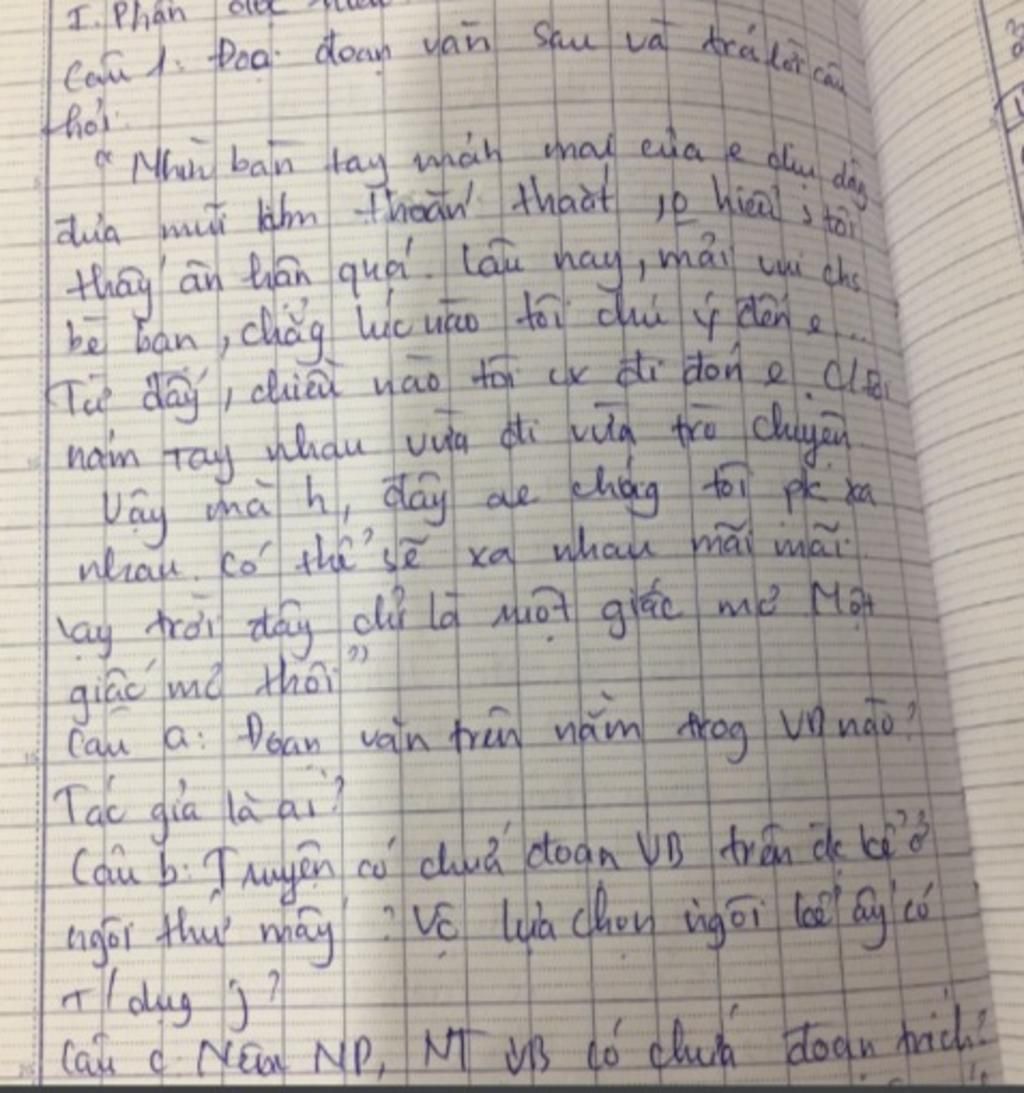 I. Phần đọc hiểu
Câu 1: Đoạ đoạn văn sau và trả lời câu
hỏi:
"Nhìn bàn tay mảnh mai của e dịu dàg
đưa mũi kim thoăn thoắt, tôi
thấy ân hận quá. Lâu nay, mải vui chs
bè bạn, chẳg lúc nào tôi chú ý đến e...
Từ đấy, chiều nào tôi cx đi đón e. Ctôi
nắm tay nhau vừa đi vừa trò chuyện
Vậy mà h, đây ae chúg tôi pk xa
nhau. Có thể sẽ xa nhau mãi mãi.
Lạy trời đây chỉ là một giấc mơ Một
giấc mơ thôi"
Câu a: Đoạn văn trên nằm trog VB nào?
Tác giả là ai?
Câu b: Truyện có chứa đoạn VB trên đc kể ở
ngôi thứ mấy? Vc lựa chọn ngôi kể ấy có
t/dụg j?
Câu c: Nêu ND, NT VB có chứa đoạn trích?